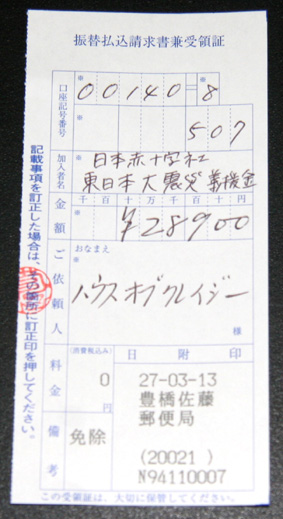 振替払込請求書兼受領証
口座記号番号
※ 00140 ※ 8
※ 507
加入者名
※ 日本赤十字社
東日本大震災義援金
金額
千百十万千百十円
※ ¥28900
ご依頼人
おなまえ
※ ハウスオブクレイジー
様
料金
(消費税込み)
0
円
備考
免除
日附印
27-03-13
豊橋佐藤
郵便局
(20021)
N94110007
記載事項を訂正した場合は、その箇所に訂正印を押してください。
この受領証は、大切に保管してください。